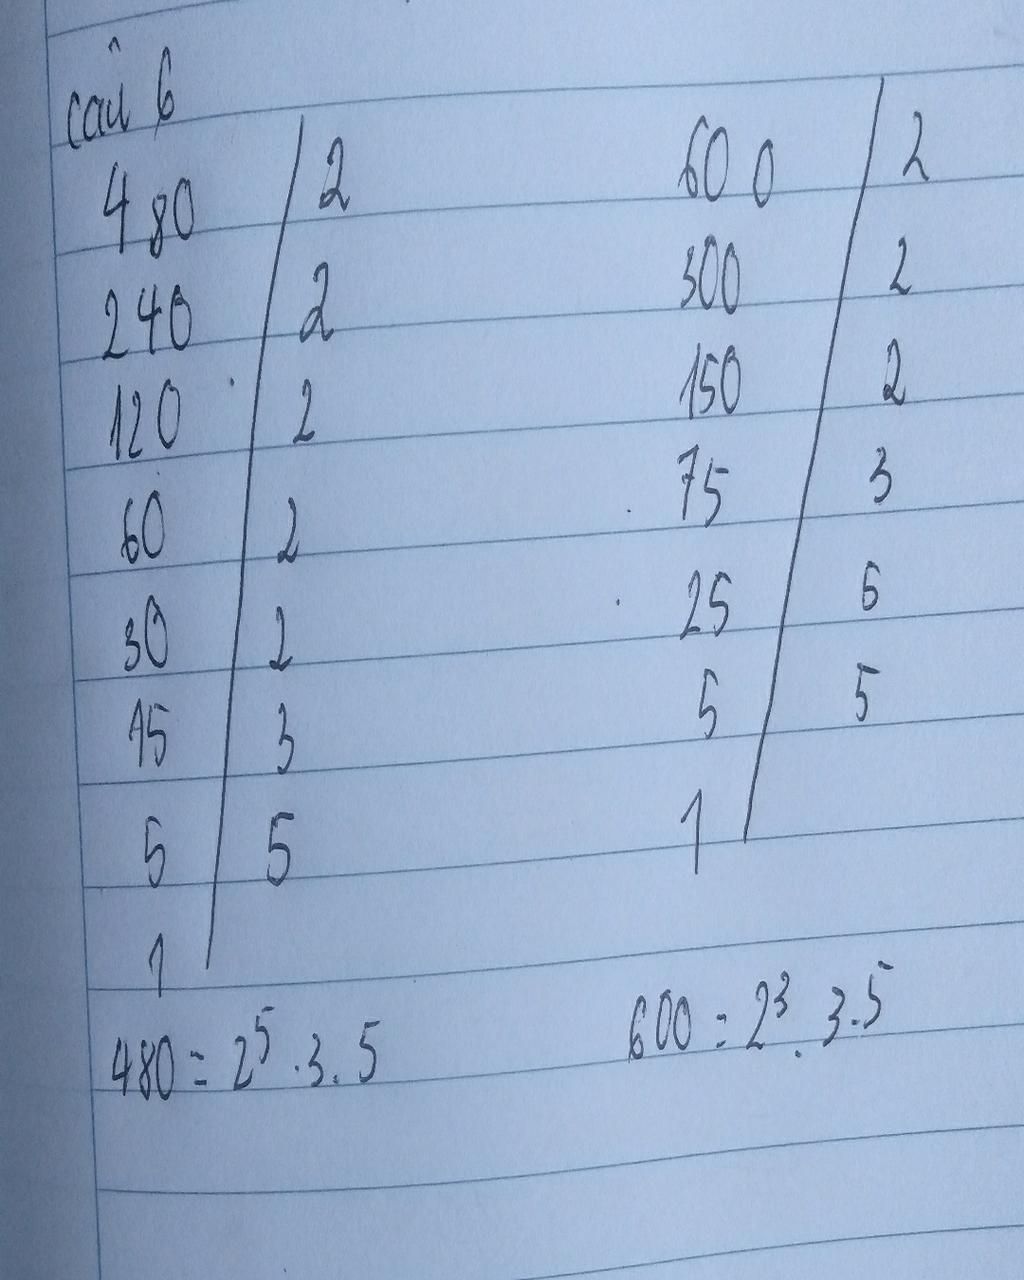 câu 6
480 | 2 600 | 2
240 | 2 300 | 2
120 | 2 150 | 2
60 | 2 75 | 3
30 | 2 25 | 5
15 | 3 5 | 5
5 | 5 1
1
480 = 2⁵ . 3 . 5 600 = 2³ . 3 . 5